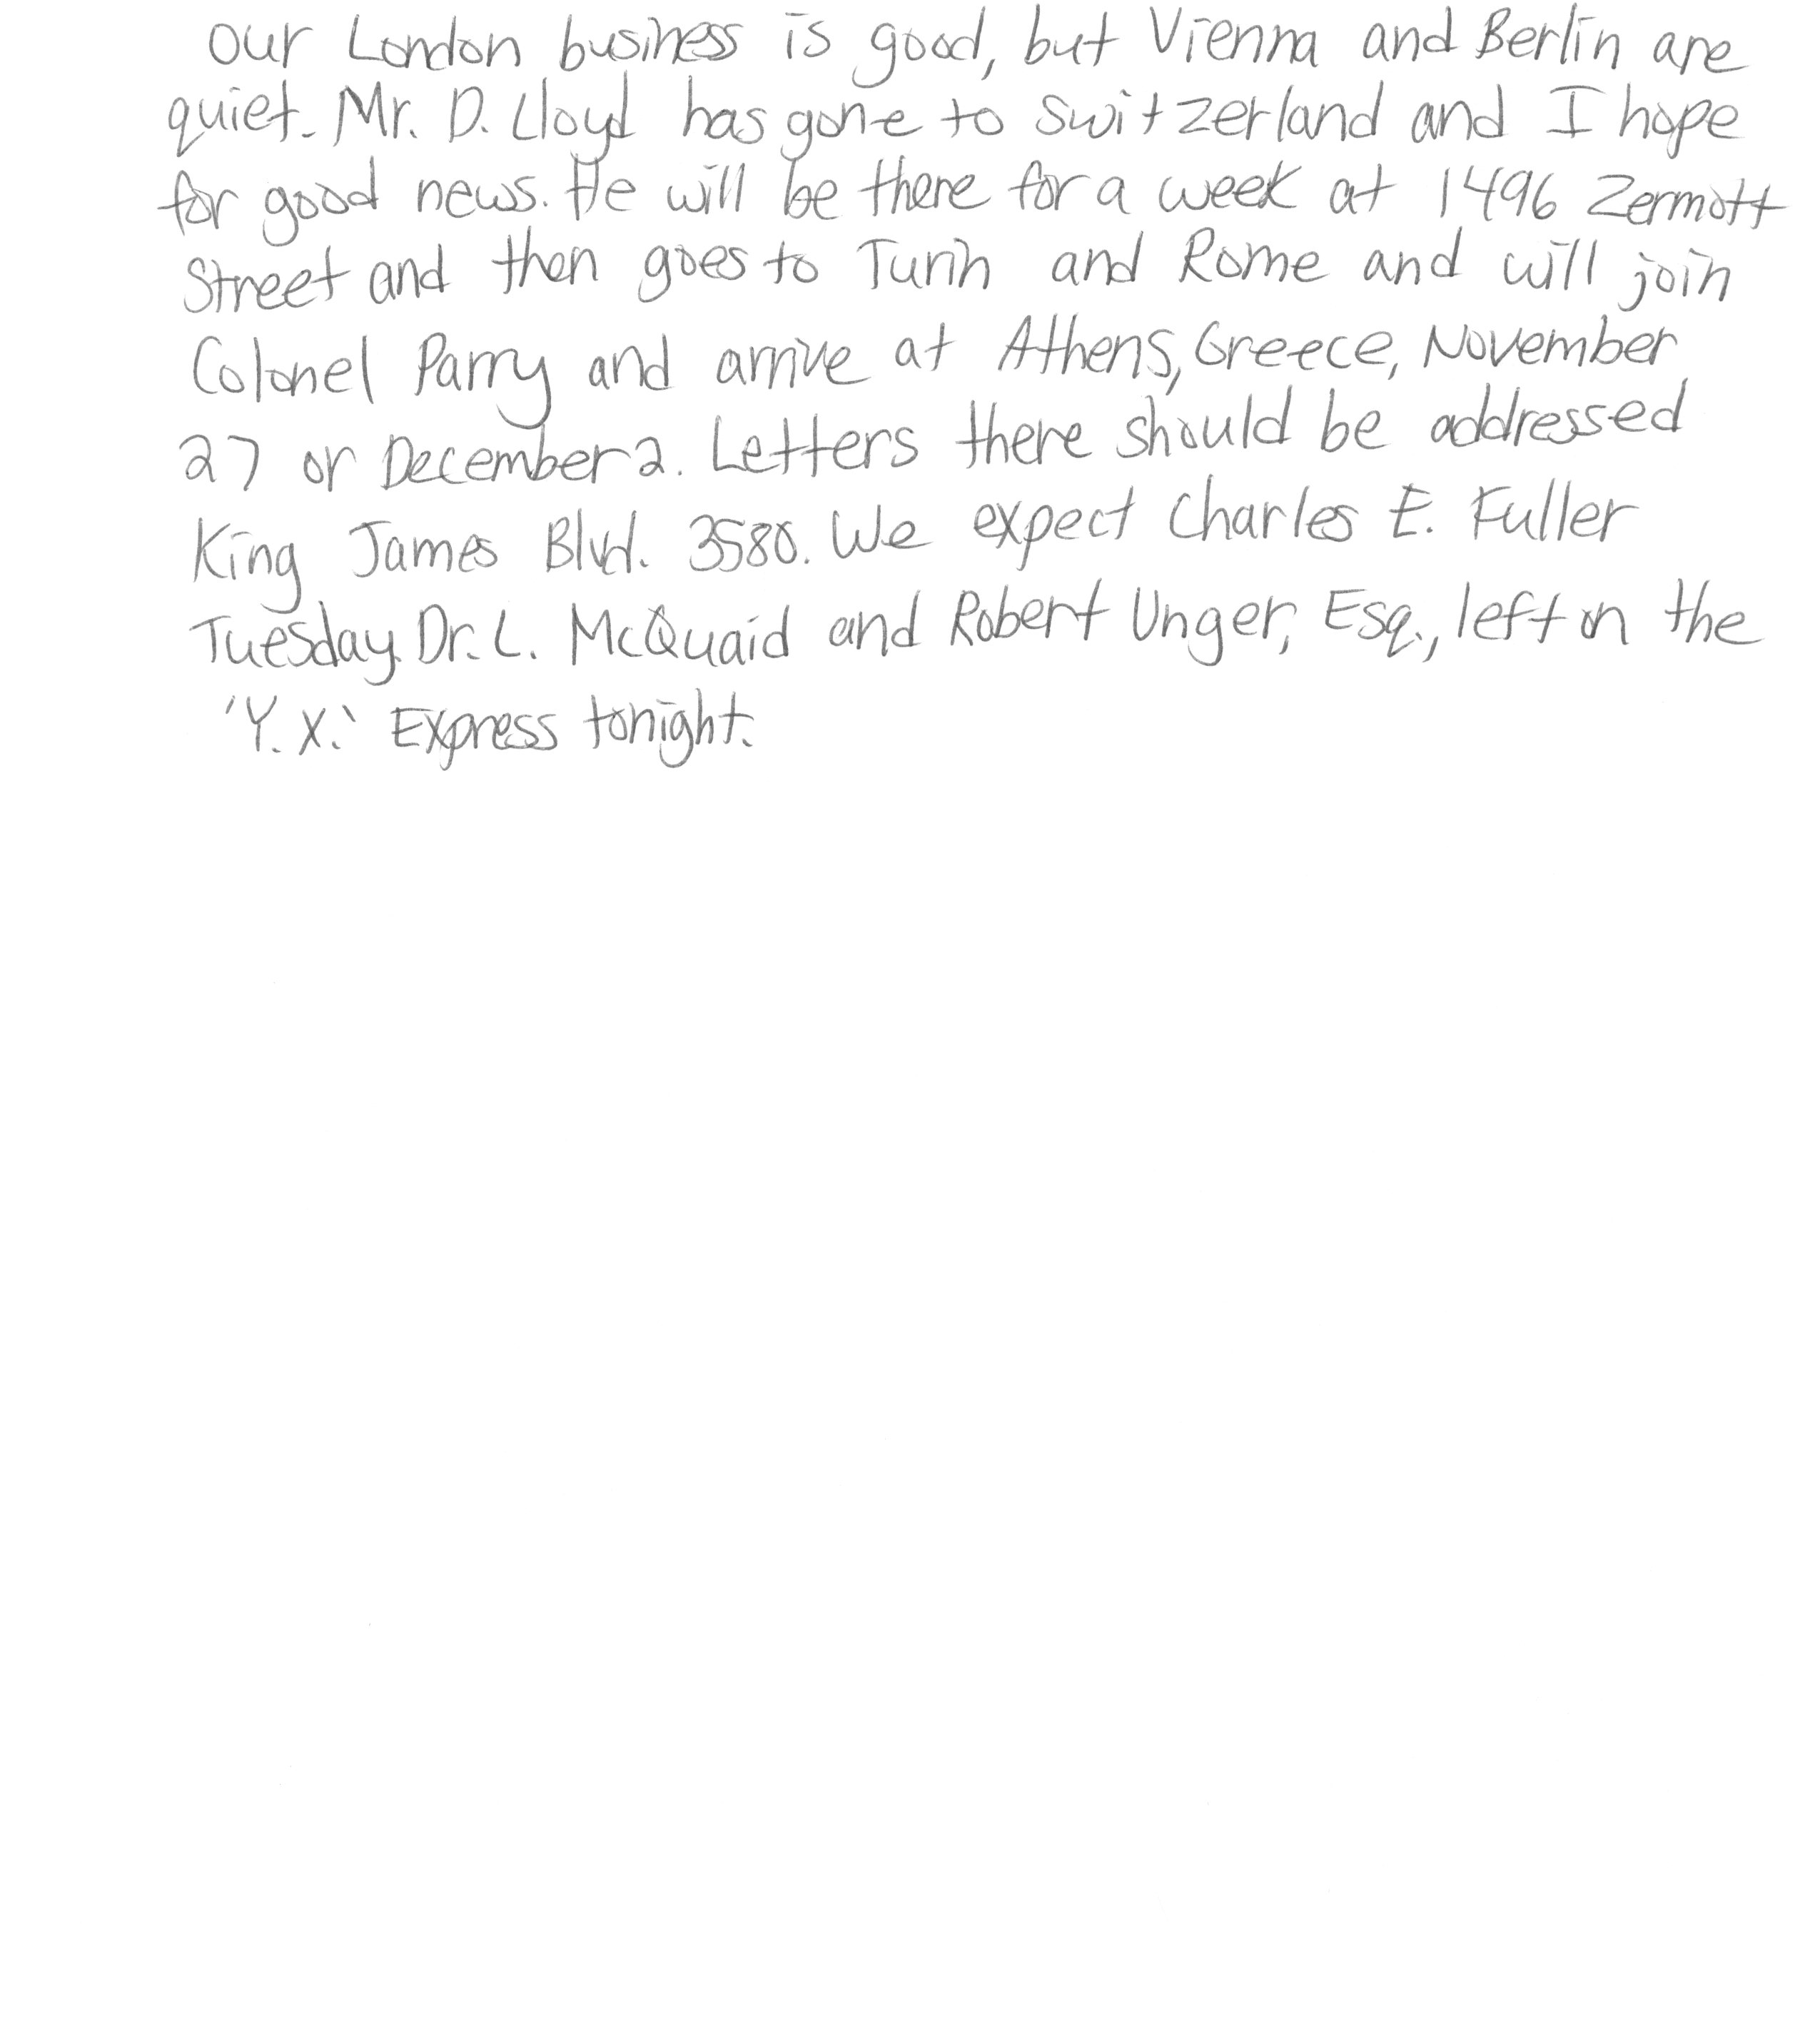 Our London business is good, but Vienna and Berlin are
quiet. Mr. D. Lloyd has gone to Switzerland and I hope
for good news. He will be there for a week at 1496 Zermott
Street and then goes to Turin and Rome and will join
Colonel Parry and arrive at Athens, Greece, November
27 or December 2. Letters there should be addressed
King James Blvd. 3580. We expect Charles E. Fuller
Tuesday. Dr. L. McQuaid and Robert Unger, Esq., left on the
'Y.X.' Express tonight.